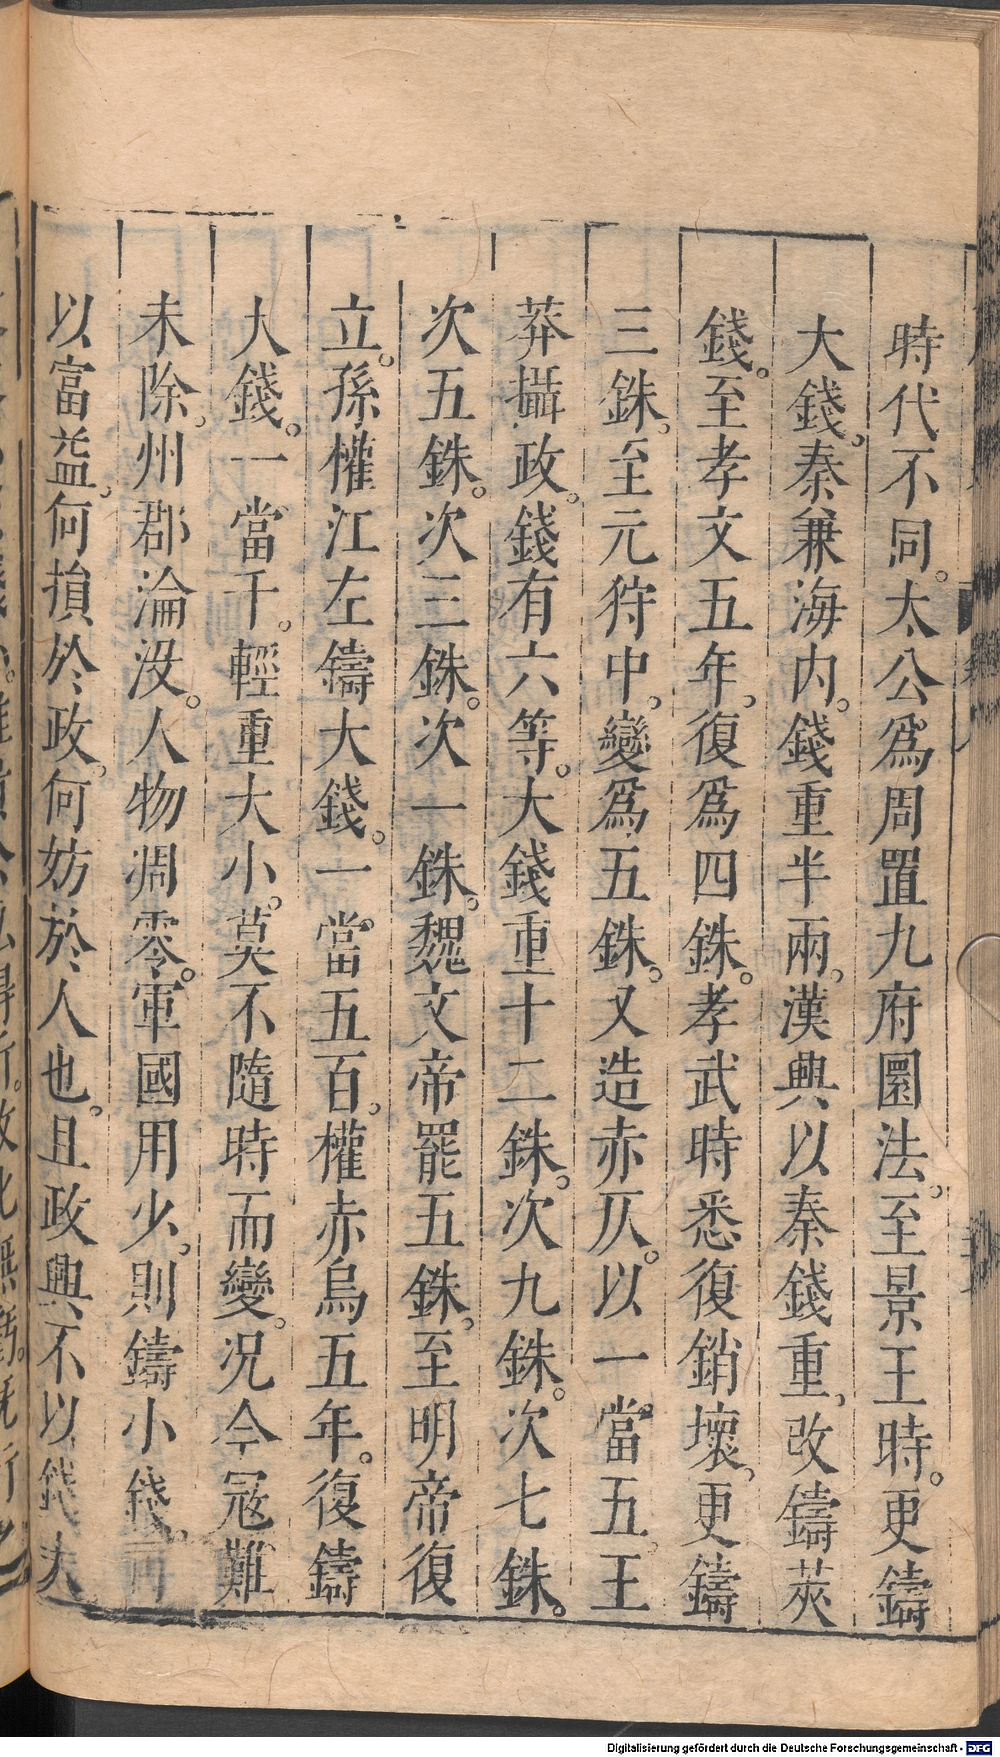 時代不同。太公爲周置九府圜法。至景王時。更鑄
大錢。秦兼海内。錢重半兩。漢興以秦錢重。改鑄莢
錢。至孝文五年。復爲四銖。孝武時悉復銷壞。更鑄
三銖。至元狩中。變爲五銖。又造赤仄。以一當五。王
莽攝政。錢有六等。大錢重十二銖。次九銖。次七銖。
次五銖。次三銖。次一銖。魏文帝罷五銖。至明帝復
立。孫權江左鑄大錢。一當五百。權赤烏五年。復鑄
大錢。一當千。輕重大小。莫不隨時而變。况今冦難
未除。州郡淪没。人物凋零。軍國用少。則鑄小錢。可
以富益。何損於政。何妨於人也。且政興不以錢大
Digitalisierung gefördert durch die Deutsche Forschungsgemeinschaft - DFG